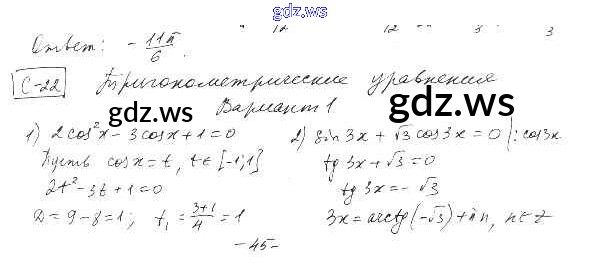 gdz.ws
Ответ: - 11π/6.
С-22 Тригонометрические уравнения
Вариант 1
gdz.ws gdz.ws
1) 2cos²x - 3cosx + 1 = 0
Пусть cosx = t, t ∈ [-1; 1]
2t² - 3t + 1 = 0
D = 9 - 8 = 1; t₁ = (3+1)/4 = 1
2) sin3x + √3 cos3x = 0 |: cos3x
tg3x + √3 = 0
tg3x = - √3
3x = arctg(-√3) + πn, n ∈ Z
- 45 -